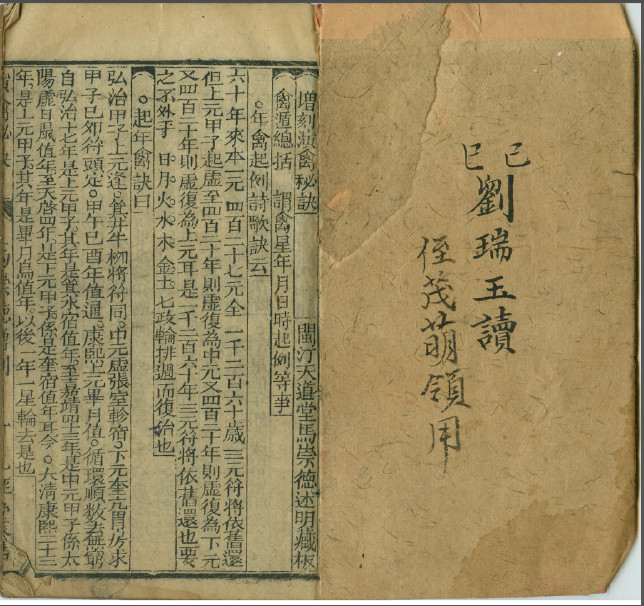 已巳
劉瑞玉讀
侄茂萌領用
增刻演禽秘訣 閩汀大道堂馬崇德述明藏板
禽遁總括 謂禽星年月日時起例等事
○年禽起例詩歌訣云
六十年來本一元 四百二十七元全 一千二百六十歲 三元符將依舊還
但上元甲子起虛至四百二十年則虛復為中元又四百二十年則虛復為下元
又四百二十年則虛復為上元耳是一千二百六十年三元符將依舊還也要
之不外乎 日月火水木金土七政輪排週而復治也
○起年禽訣曰
弘治甲子上元逢○箕井牛柳將符同○中元虛張室軫宿○下元奎亢胃房求
甲子已夘符頭定○甲午已酉年值逼○康熙上元畢月值○循環順數去無窮
自弘治十七年是上元甲子其年是箕水宿值年至嘉靖四十三年是中元甲子係太
陽虛日鼠值年至天啓四年是上元甲子係是奎宿值年耳今○大清康熙二十三
年○是上元甲子其年是畢月烏值年○以後一年一星輪去是也